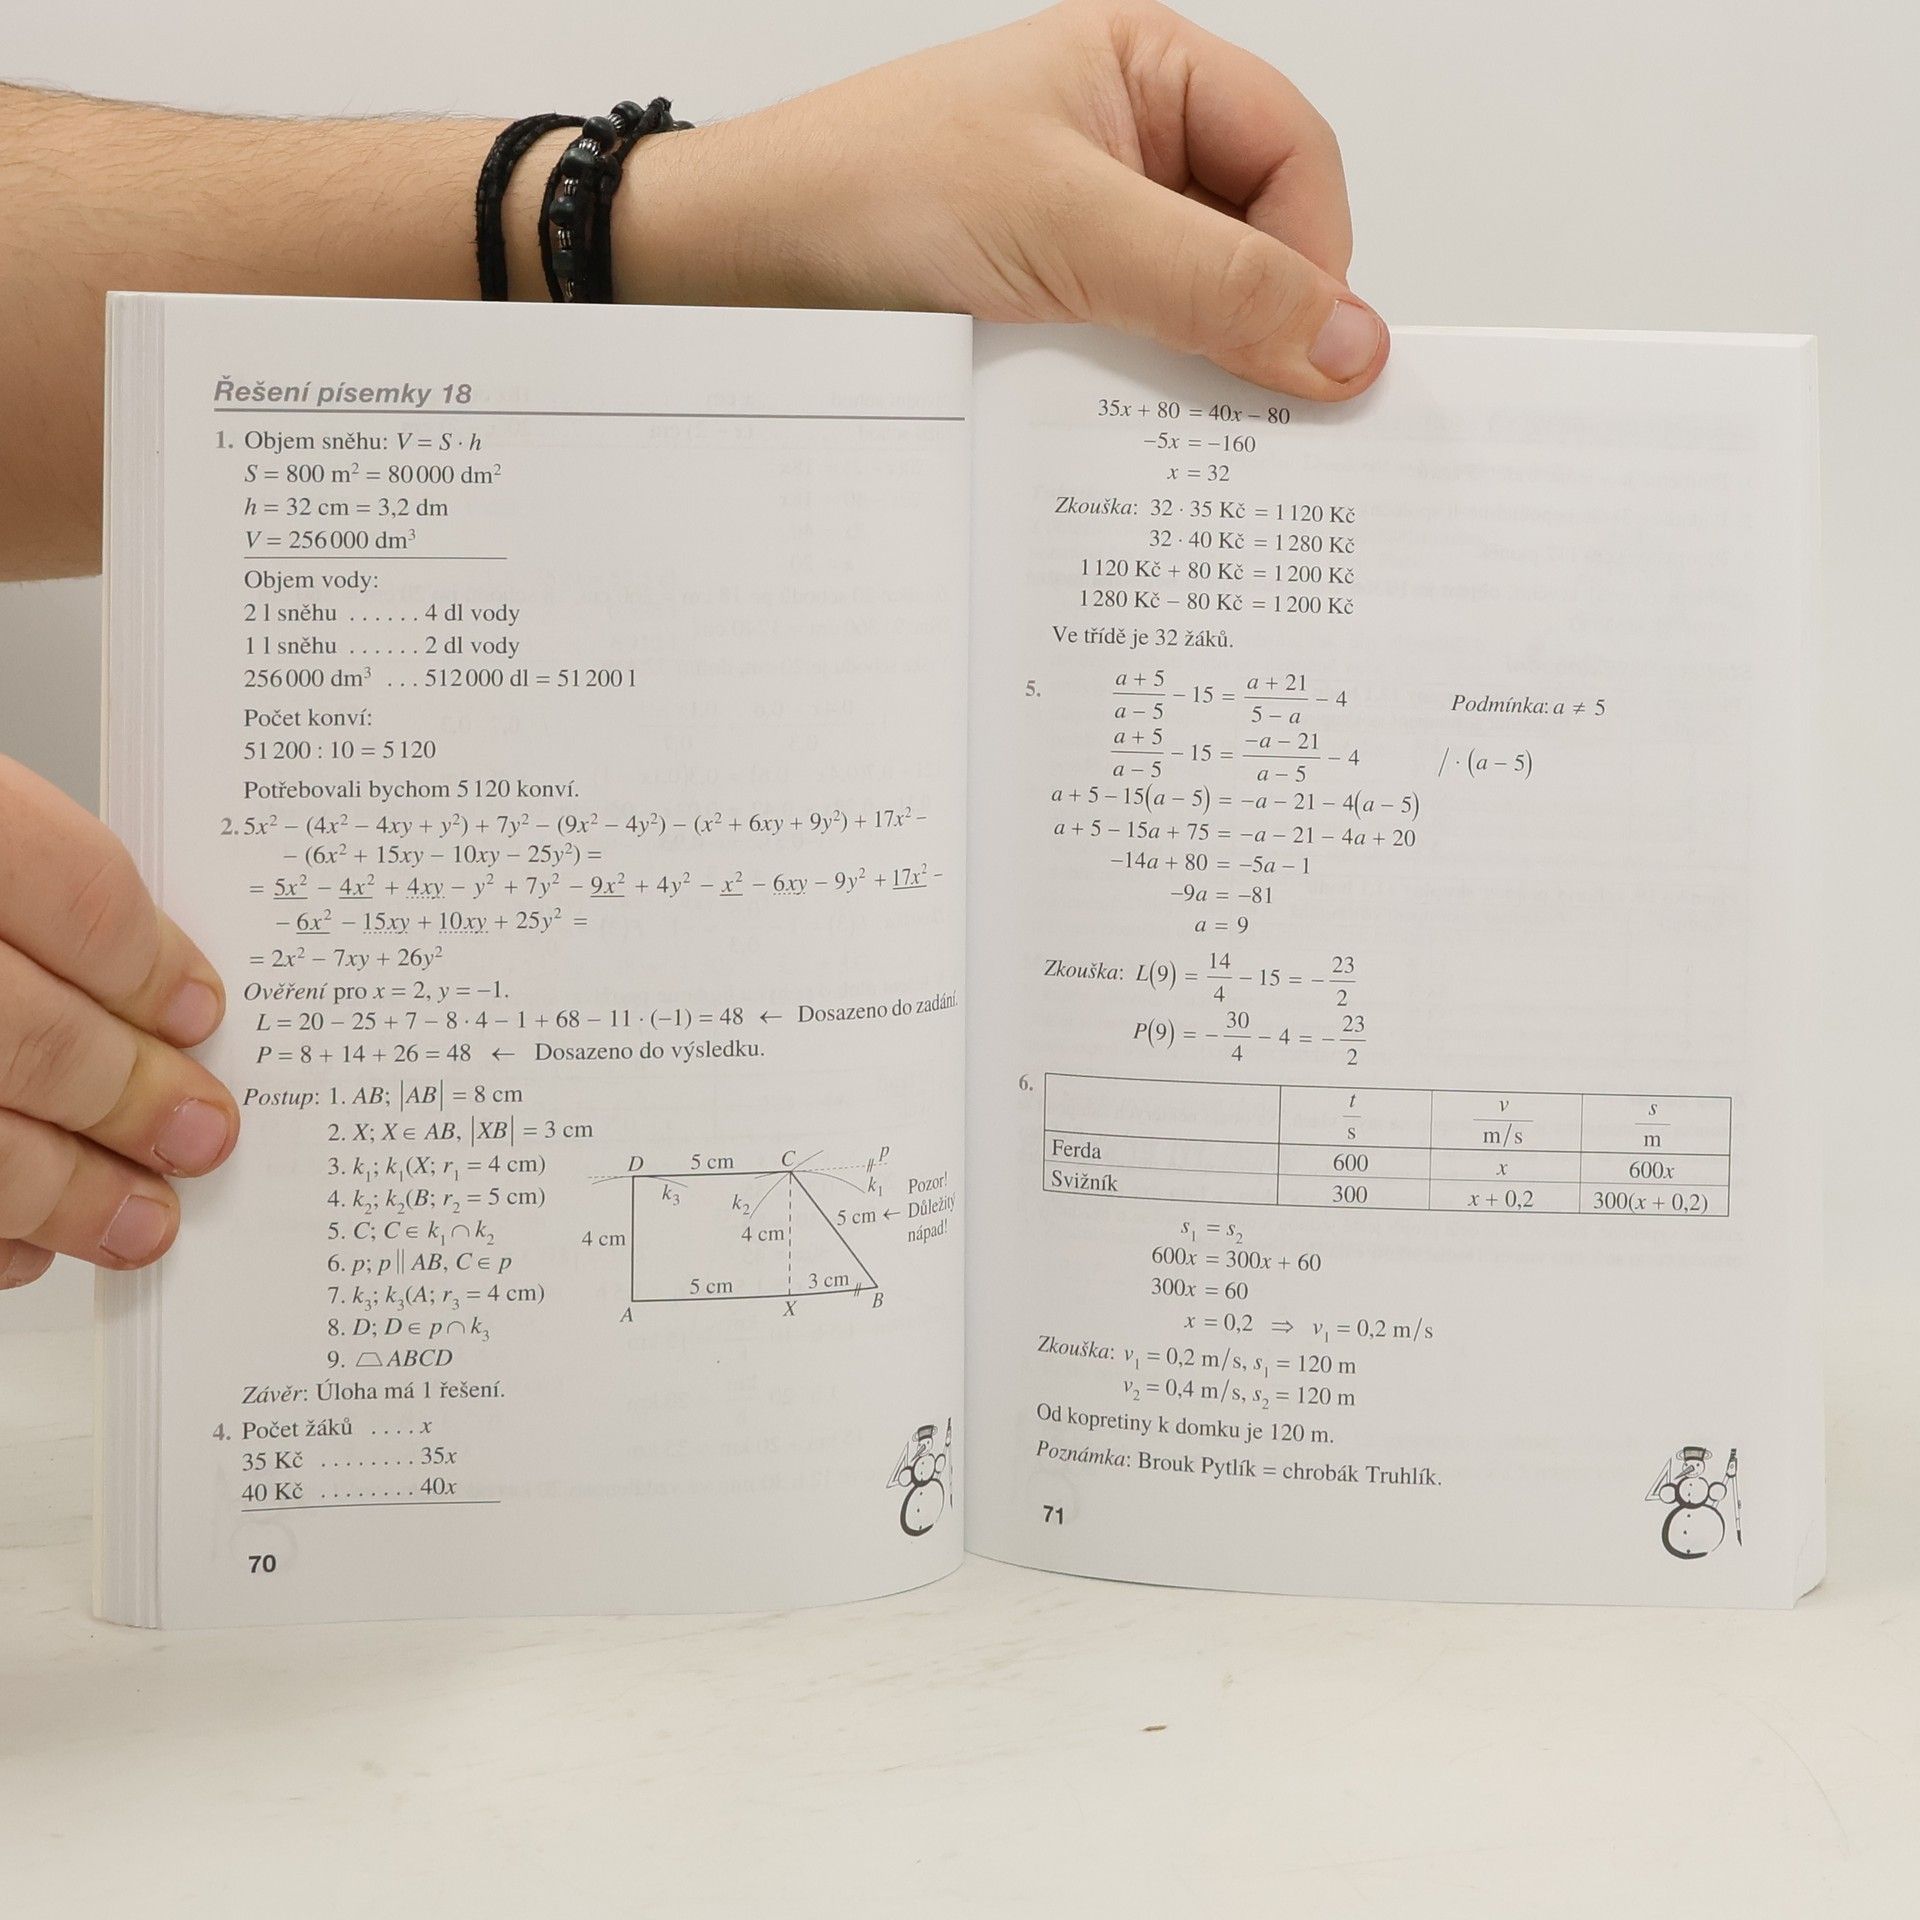 Řešení písemky 18
1. Objem sněhu: V = S · h
S = 800 m² = 80 000 dm²
h = 32 cm = 3,2 dm
V = 256 000 dm³
Objem vody:
2 l sněhu ...... 4 dl vody
1 l sněhu ...... 2 dl vody
256 000 dm³ ... 512 000 dl = 51 200 l
Počet konví:
51 200 : 10 = 5 120
Potřebovali bychom 5 120 konví.
2. 5x² – (4x² – 4xy + y²) + 7y² – (9x² – 4y²) – (x² + 6xy + 9y²) + 17x² –
– (6x² + 15xy – 10xy – 25y²) =
= 5x² – 4x² + 4xy – y² + 7y² – 9x² + 4y² – x² – 6xy – 9y² + 17x² –
– 6x² – 15xy + 10xy + 25y² =
= 2x² – 7xy + 26y²
Ověření pro x = 2, y = –1.
L = 20 – 25 + 7 – 8 · 4 – 1 + 68 – 11 · (–1) = 48 ← Dosazeno do zadání.
P = 8 + 14 + 26 = 48 ← Dosazeno do výsledku.
Postup: 1. AB; |AB| = 8 cm
2. X; X ∈ AB, |XB| = 3 cm
3. k₁; k₁(X; r₁ = 4 cm)
4. k₂; k₂(B; r₂ = 5 cm)
5. C; C ∈ k₁ ∩ k₂
6. p; p || AB, C ∈ p
7. k₃; k₃(A; r₃ = 4 cm)
8. D; D ∈ p ∩ k₃
9. ⏢ ABCD
D 5 cm C p
k₃ k₂ k₁ Pozor!
4 cm 4 cm 5 cm ← Důležitý
nápad!
5 cm 3 cm
A X B
Závěr: Úloha má 1 řešení.
4. Počet žáků .... x
35 Kč ........ 35x
40 Kč ........ 40x
70
35x + 80 = 40x – 80
–5x = –160
x = 32
Zkouška: 32 · 35 Kč = 1 120 Kč
32 · 40 Kč = 1 280 Kč
1 120 Kč + 80 Kč = 1 200 Kč
1 280 Kč – 80 Kč = 1 200 Kč
Ve třídě je 32 žáků.
5. (a + 5)/(a – 5) – 15 = (a + 21)/(5 – a) – 4 Podmínka: a ≠ 5
(a + 5)/(a – 5) – 15 = (–a – 21)/(a – 5) – 4 / · (a – 5)
a + 5 – 15(a – 5) = –a – 21 – 4(a – 5)
a + 5 – 15a + 75 = –a – 21 – 4a + 20
–14a + 80 = –5a – 1
–9a = –81
a = 9
Zkouška: L(9) = 14/4 – 15 = – 23/2
P(9) = – 30/4 – 4 = – 23/2
6. t/s v/m/s s/m
Ferda 600 x 600x
Svižník 300 x + 0,2 300(x + 0,2)
s₁ = s₂
600x = 300x + 60
300x = 60
x = 0,2 ⇒ v₁ = 0,2 m/s
Zkouška: v₁ = 0,2 m/s, s₁ = 120 m
v₂ = 0,4 m/s, s₂ = 120 m
Od kopretiny k domku je 120 m.
Poznámka: Brouk Pytlík = chrobák Truhlík.
71